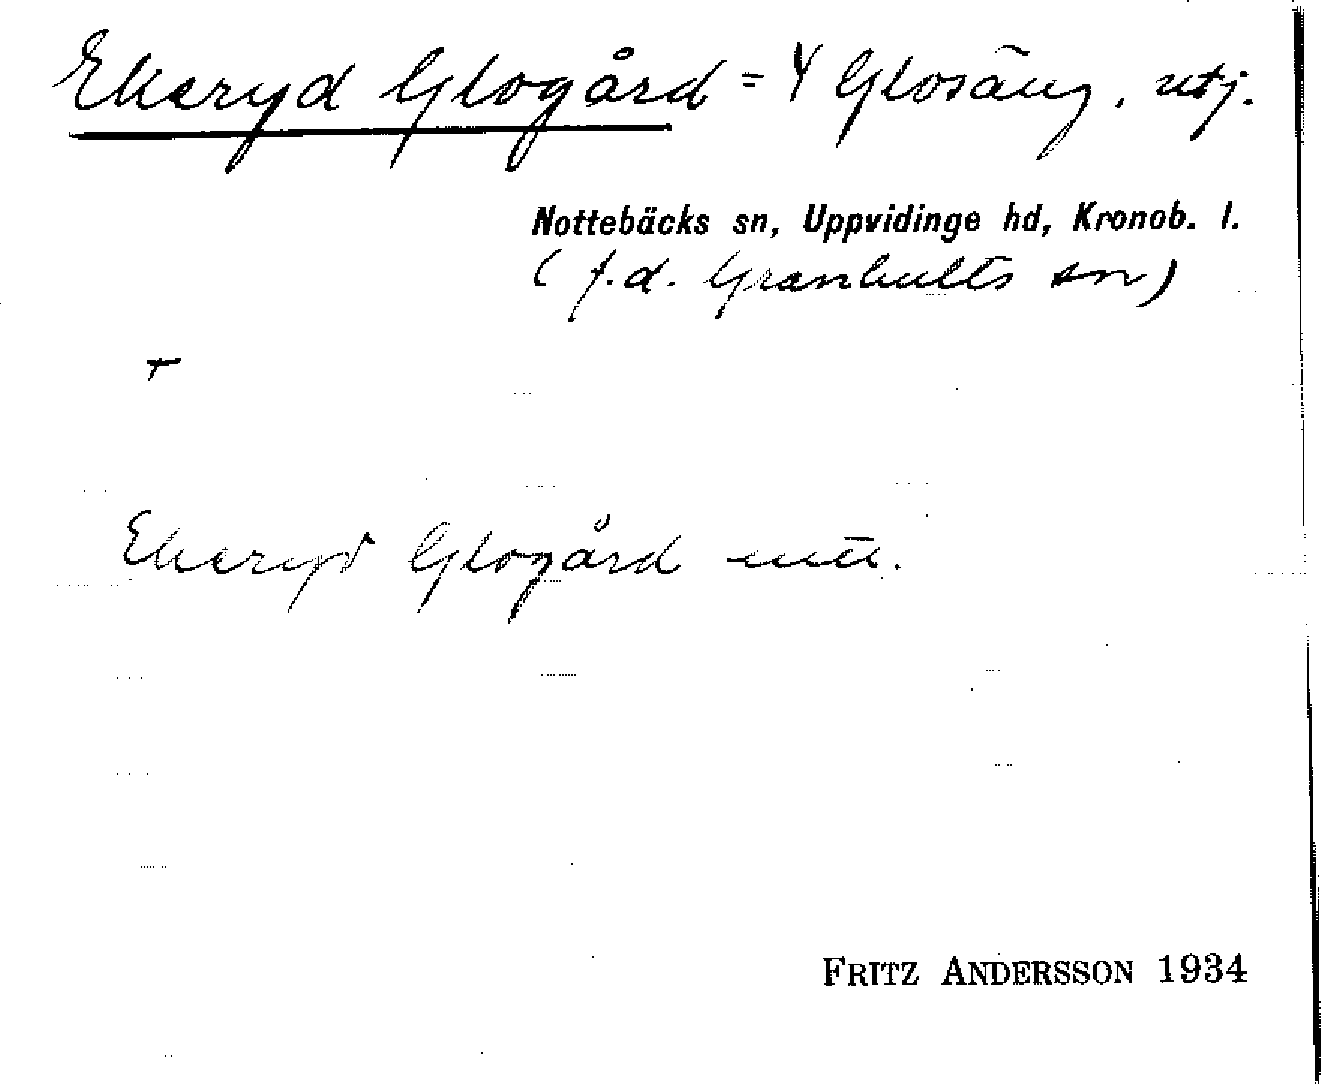 Ekeryd Glogård = Y Glosäng, utj.
Nottebäcks sn, Uppvidinge hd, Kronob. l.
(f.d. Granhults sn)
Ekeryd Glogård
FRITZ ANDERSSON 1934